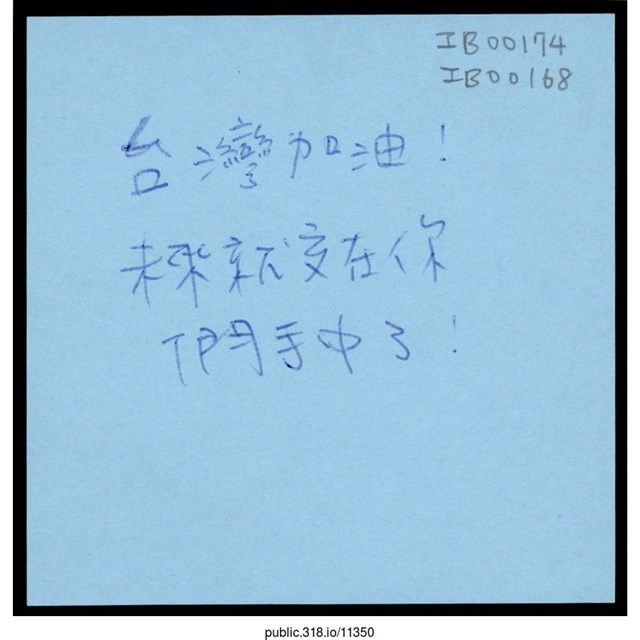 IB00174
IB00168
台灣加油！
未來就交在你
們手中了！
public.318.io/11350